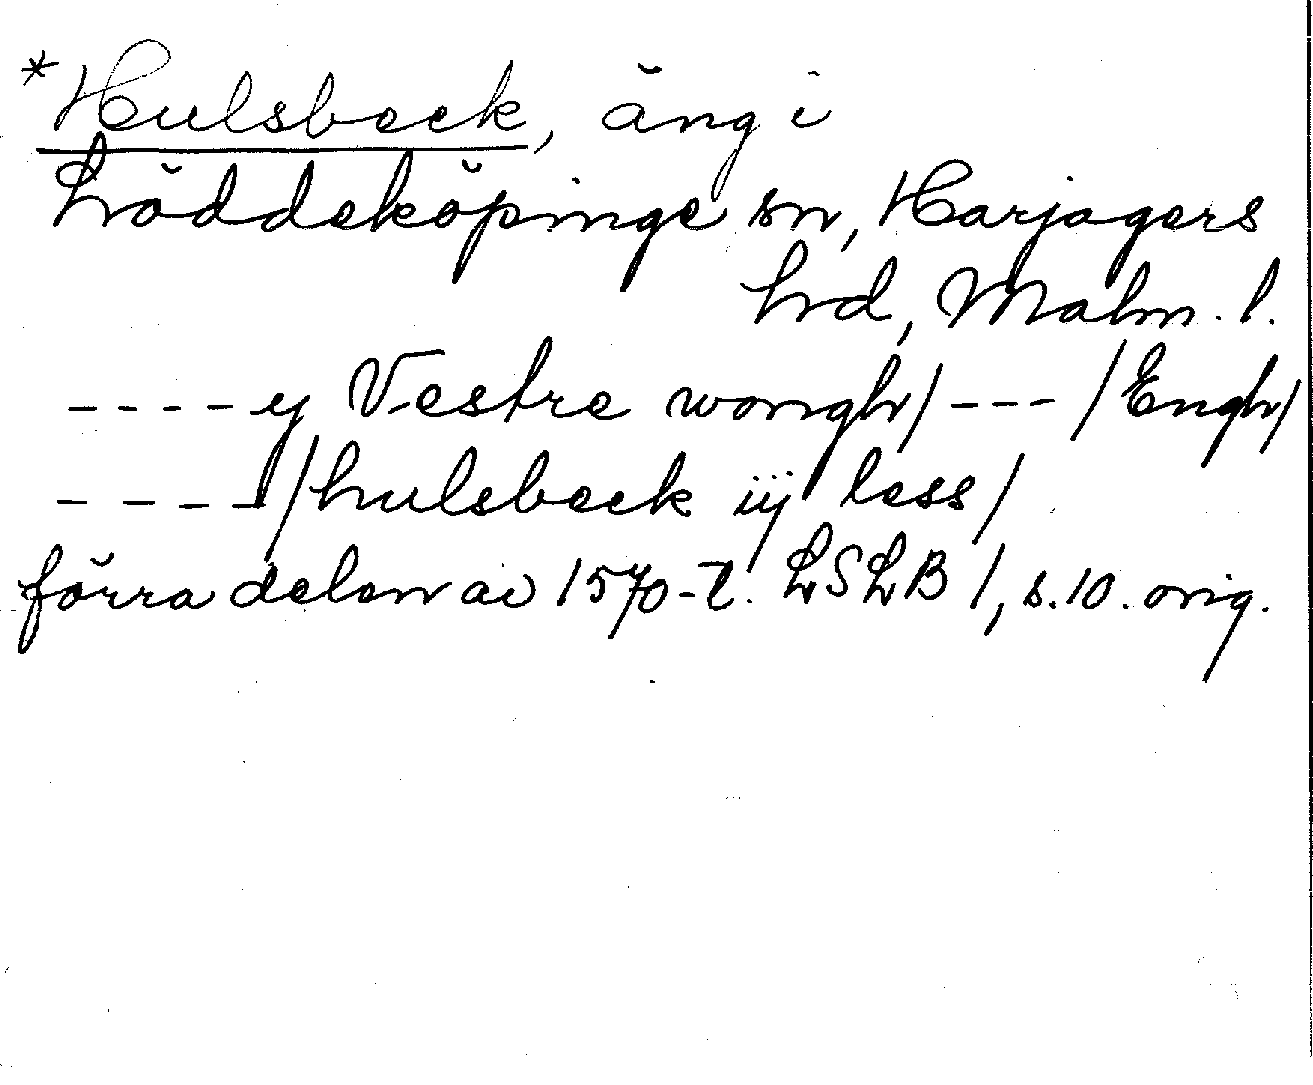 *Hulsbeck, äng i
Löddeköpinge sn, Harjagers
hd, Malm. l.
----y Vestre wongh/---/Engh/
----/hulsbeck iij less/
förra delen av 1570-t. LSLB 1, s. 10. orig.